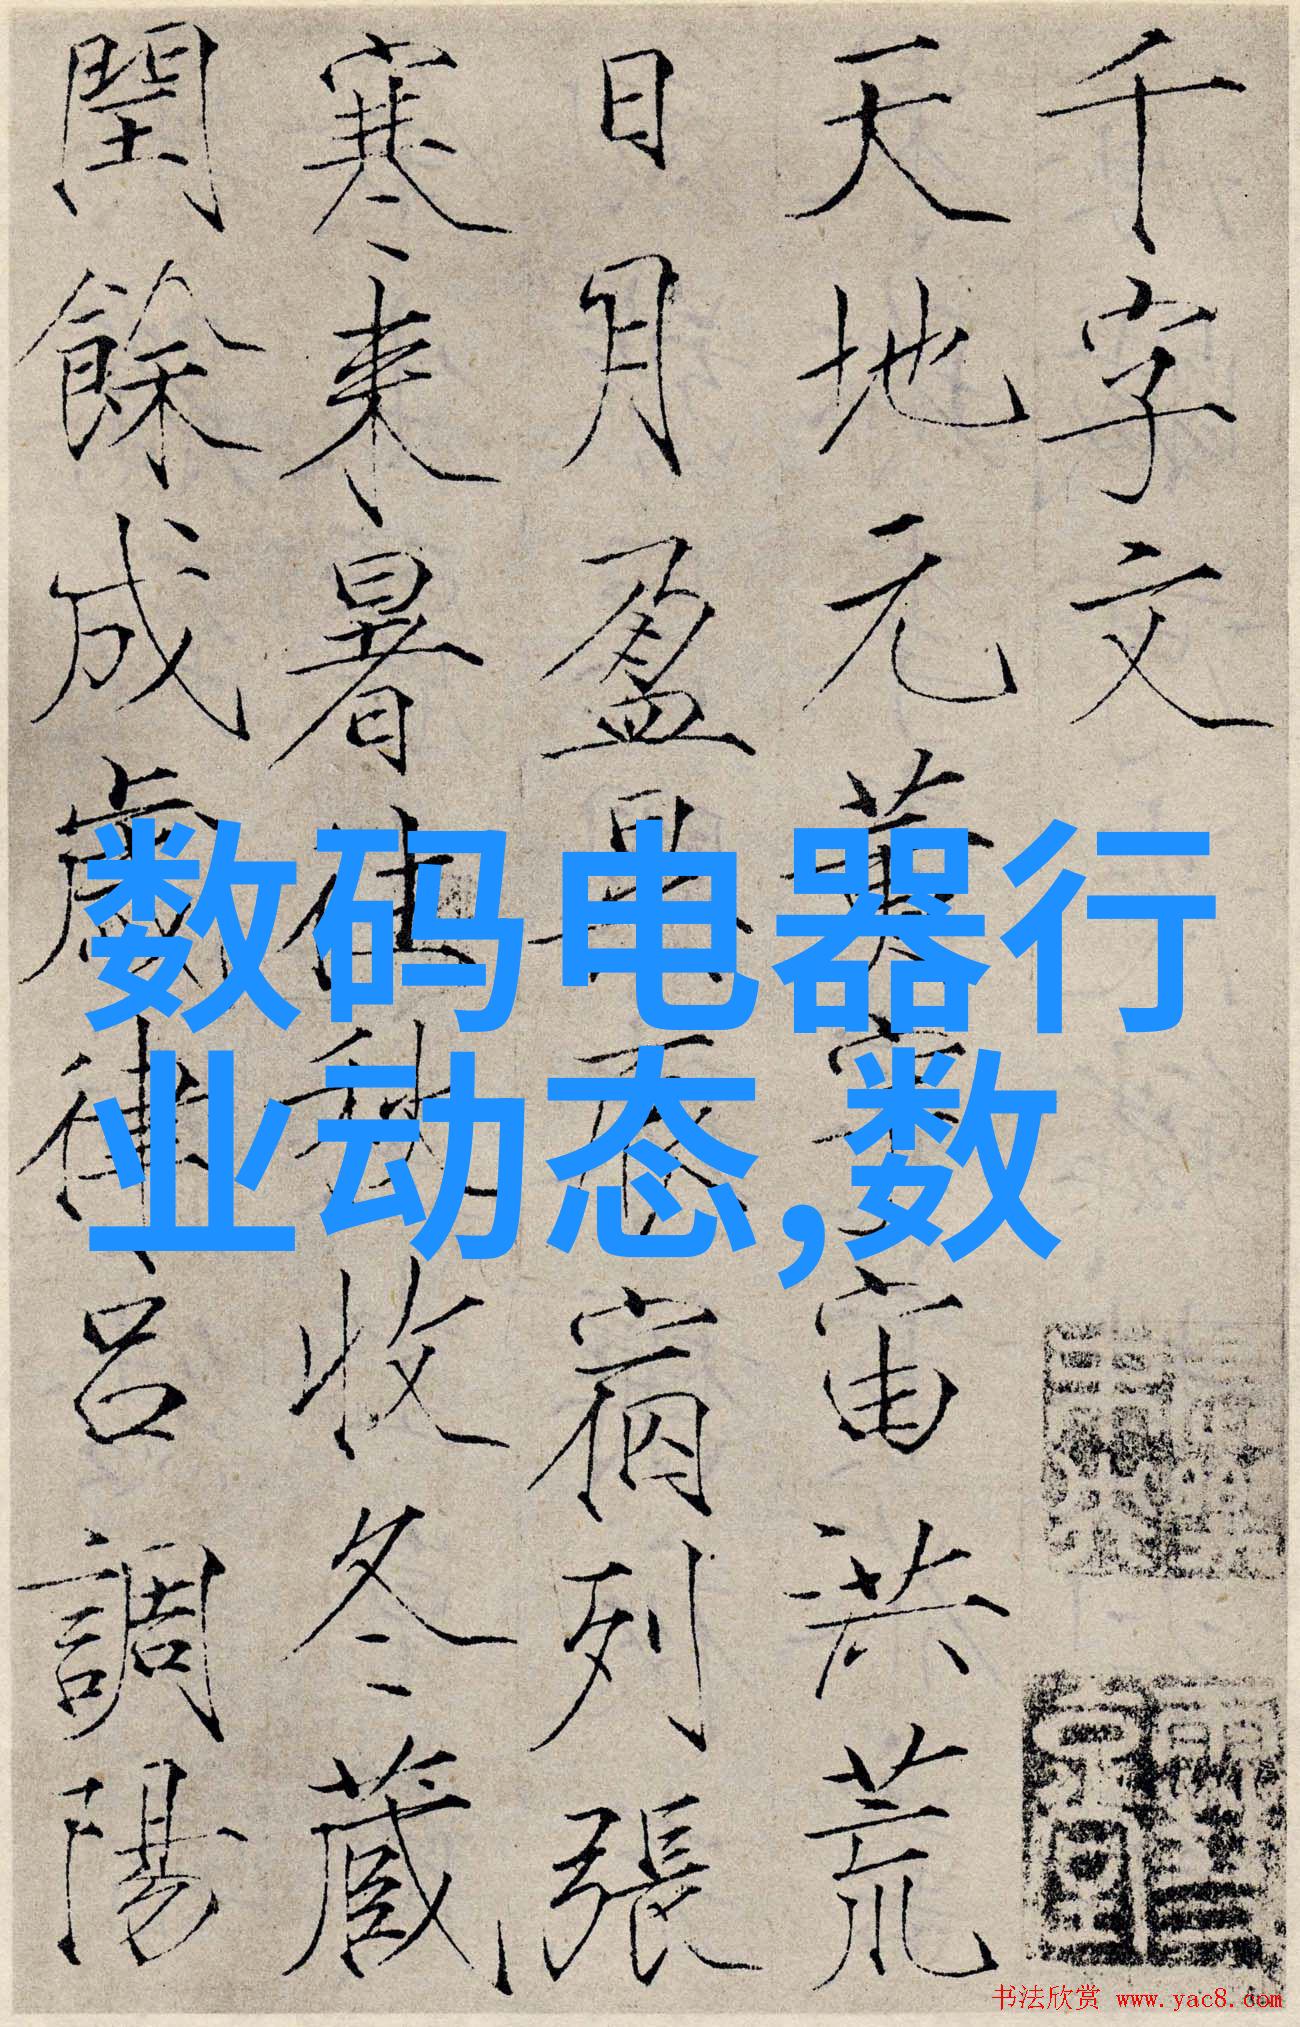 千字文
天地元黄宇宙洪荒
日月盈昃辰宿列張
寒来暑往秋收冬蔵
閏餘成歲律呂調陽
数码电器行
业动态,数
书法欣赏 www.yac8.com